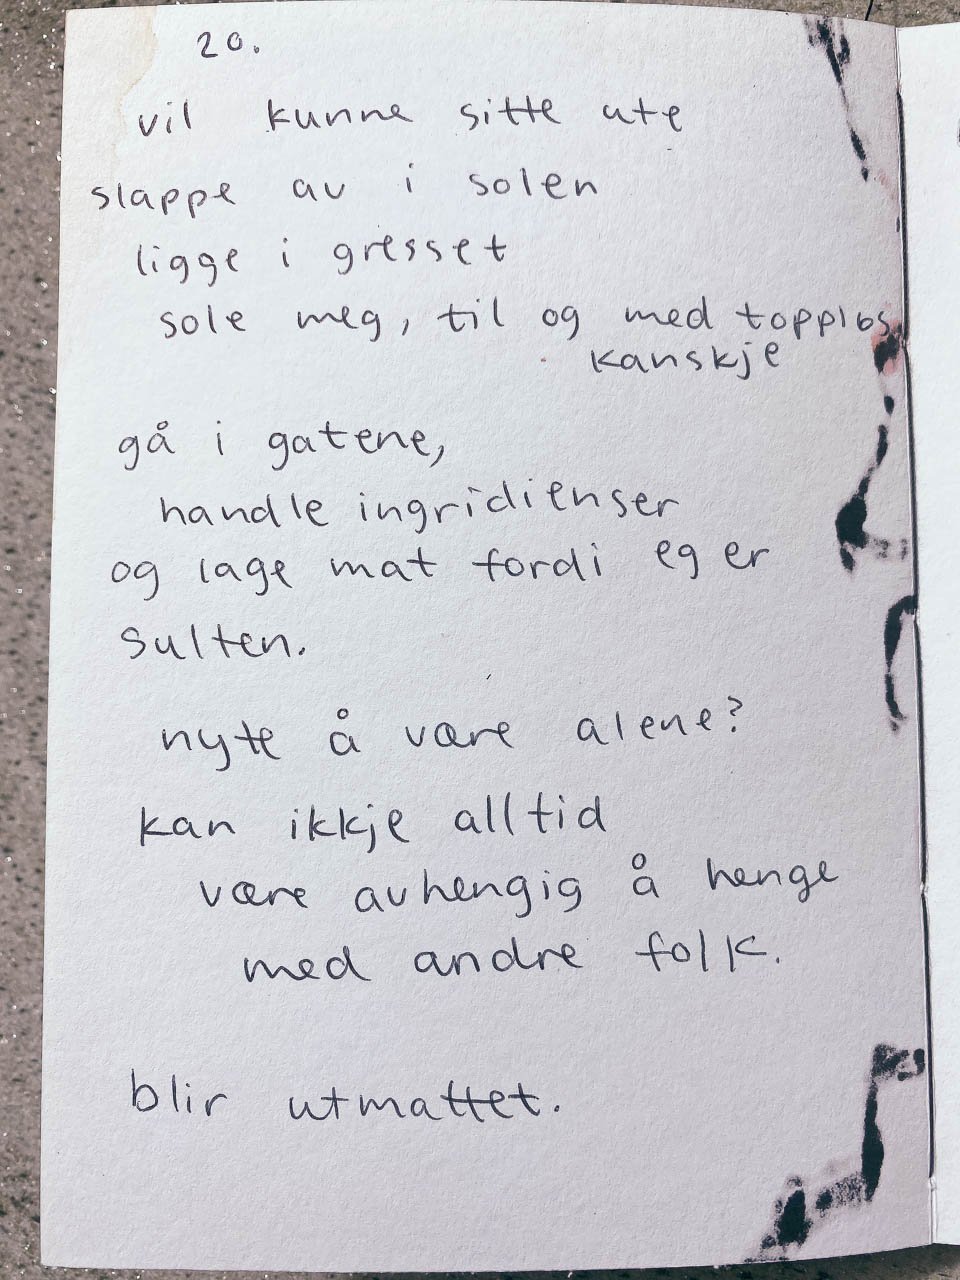 20.
vil kunne sitte ute
slappe av i solen
ligge i gresset
sole meg, til og med toppløs
kanskje
gå i gatene,
handle ingridienser
og lage mat fordi eg er
sulten.
nyte å være alene?
kan ikkje alltid
være avhengig å henge
med andre folk.
blir utmattet.